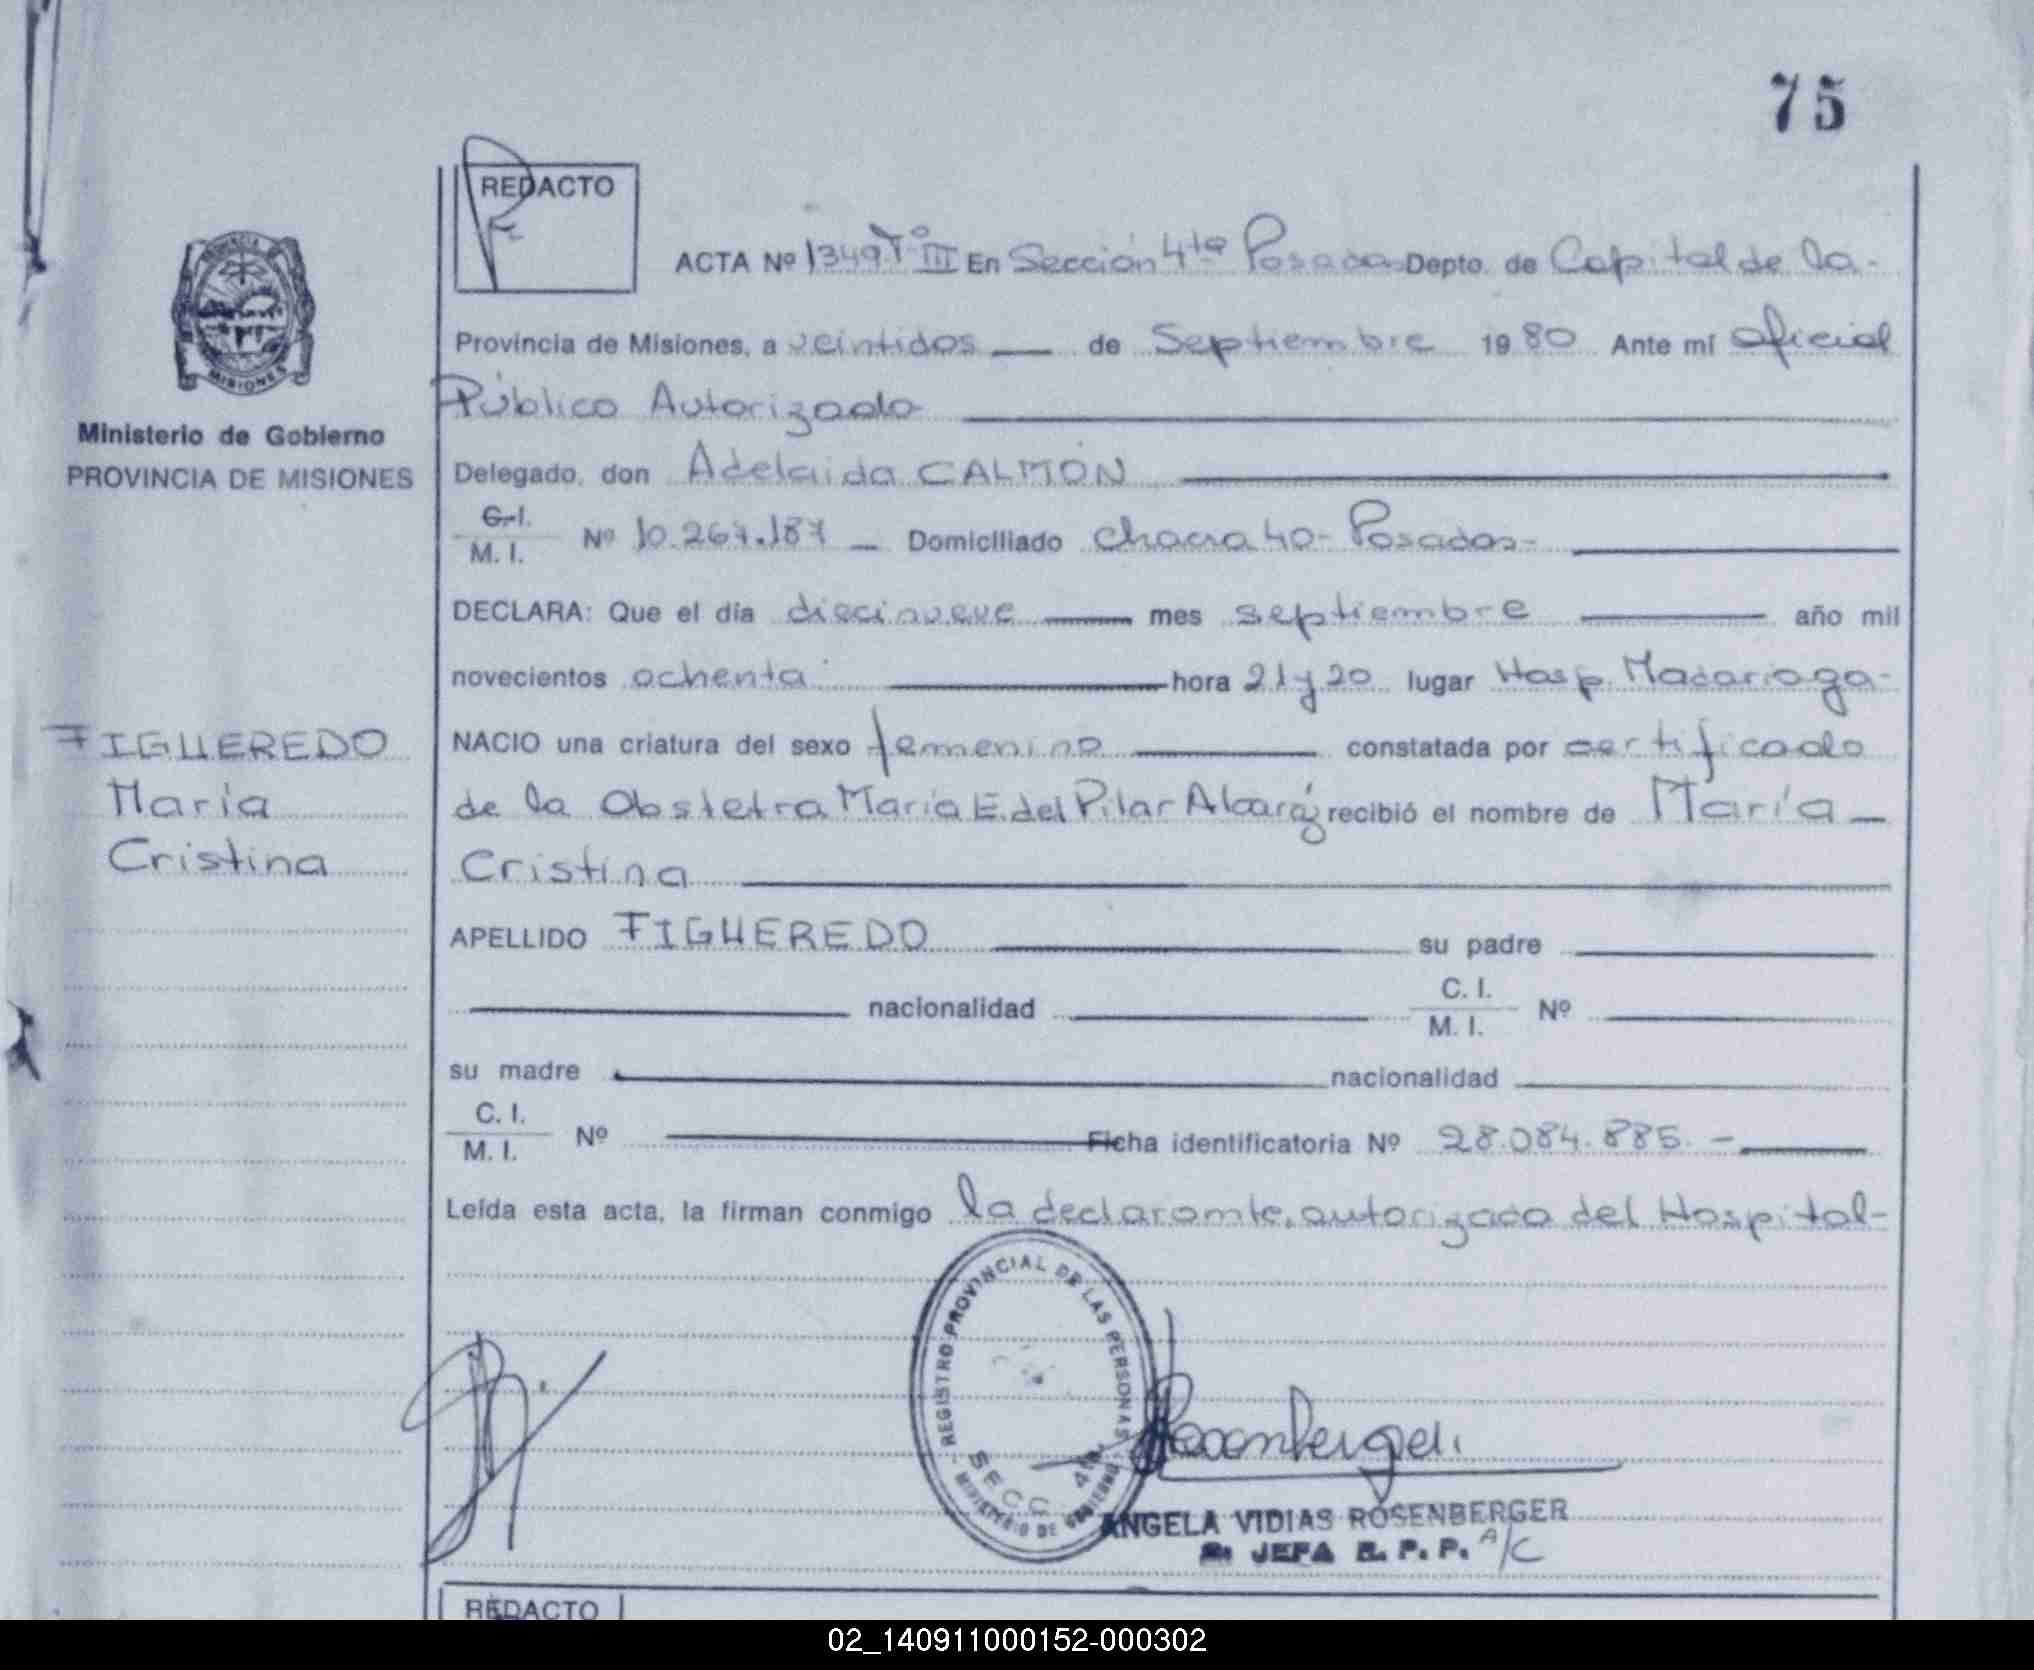 75
REDACTO
ACTA Nº 1349 Tº III En Sección 4ta Posadas Depto. de Capital de la-
Provincia de Misiones, a veintidos de Septiembre 1980 Ante mí Oficial
Público Autorizado
Delegado, don Adelaida CALMÓN
C.I. M.I. Nº 10.267.187 - Domiciliado chacra 40- Posadas-
DECLARA: Que el día diecinueve mes septiembre año mil
novecientos ochenta hora 21 y 20 lugar Hosp. Madariaga-
NACIO una criatura del sexo femenino constatada por certificado
de la Obstetra María E. del Pilar Alcaráz recibió el nombre de María
Cristina
APELLIDO FIGUEREDO su padre
nacionalidad C. I. M. I. Nº
su madre nacionalidad
C. I. M. I. Nº Ficha identificatoria Nº 28.084.885.-
Leída esta acta, la firman conmigo la declarante, autorizada del Hospital-
PROVINCIA DE MISIONES
Ministerio de Gobierno
PROVINCIA DE MISIONES
FIGUEREDO
María
Cristina
REGISTRO PROVINCIAL DE LAS PERSONAS
SECC. 4ta.
MINISTERIO DE GOBIERNO
Rosenberger
ANGELA VIDIAS ROSENBERGER
JEFA R. P. P. A/C
REDACTO
02_140911000152-000302